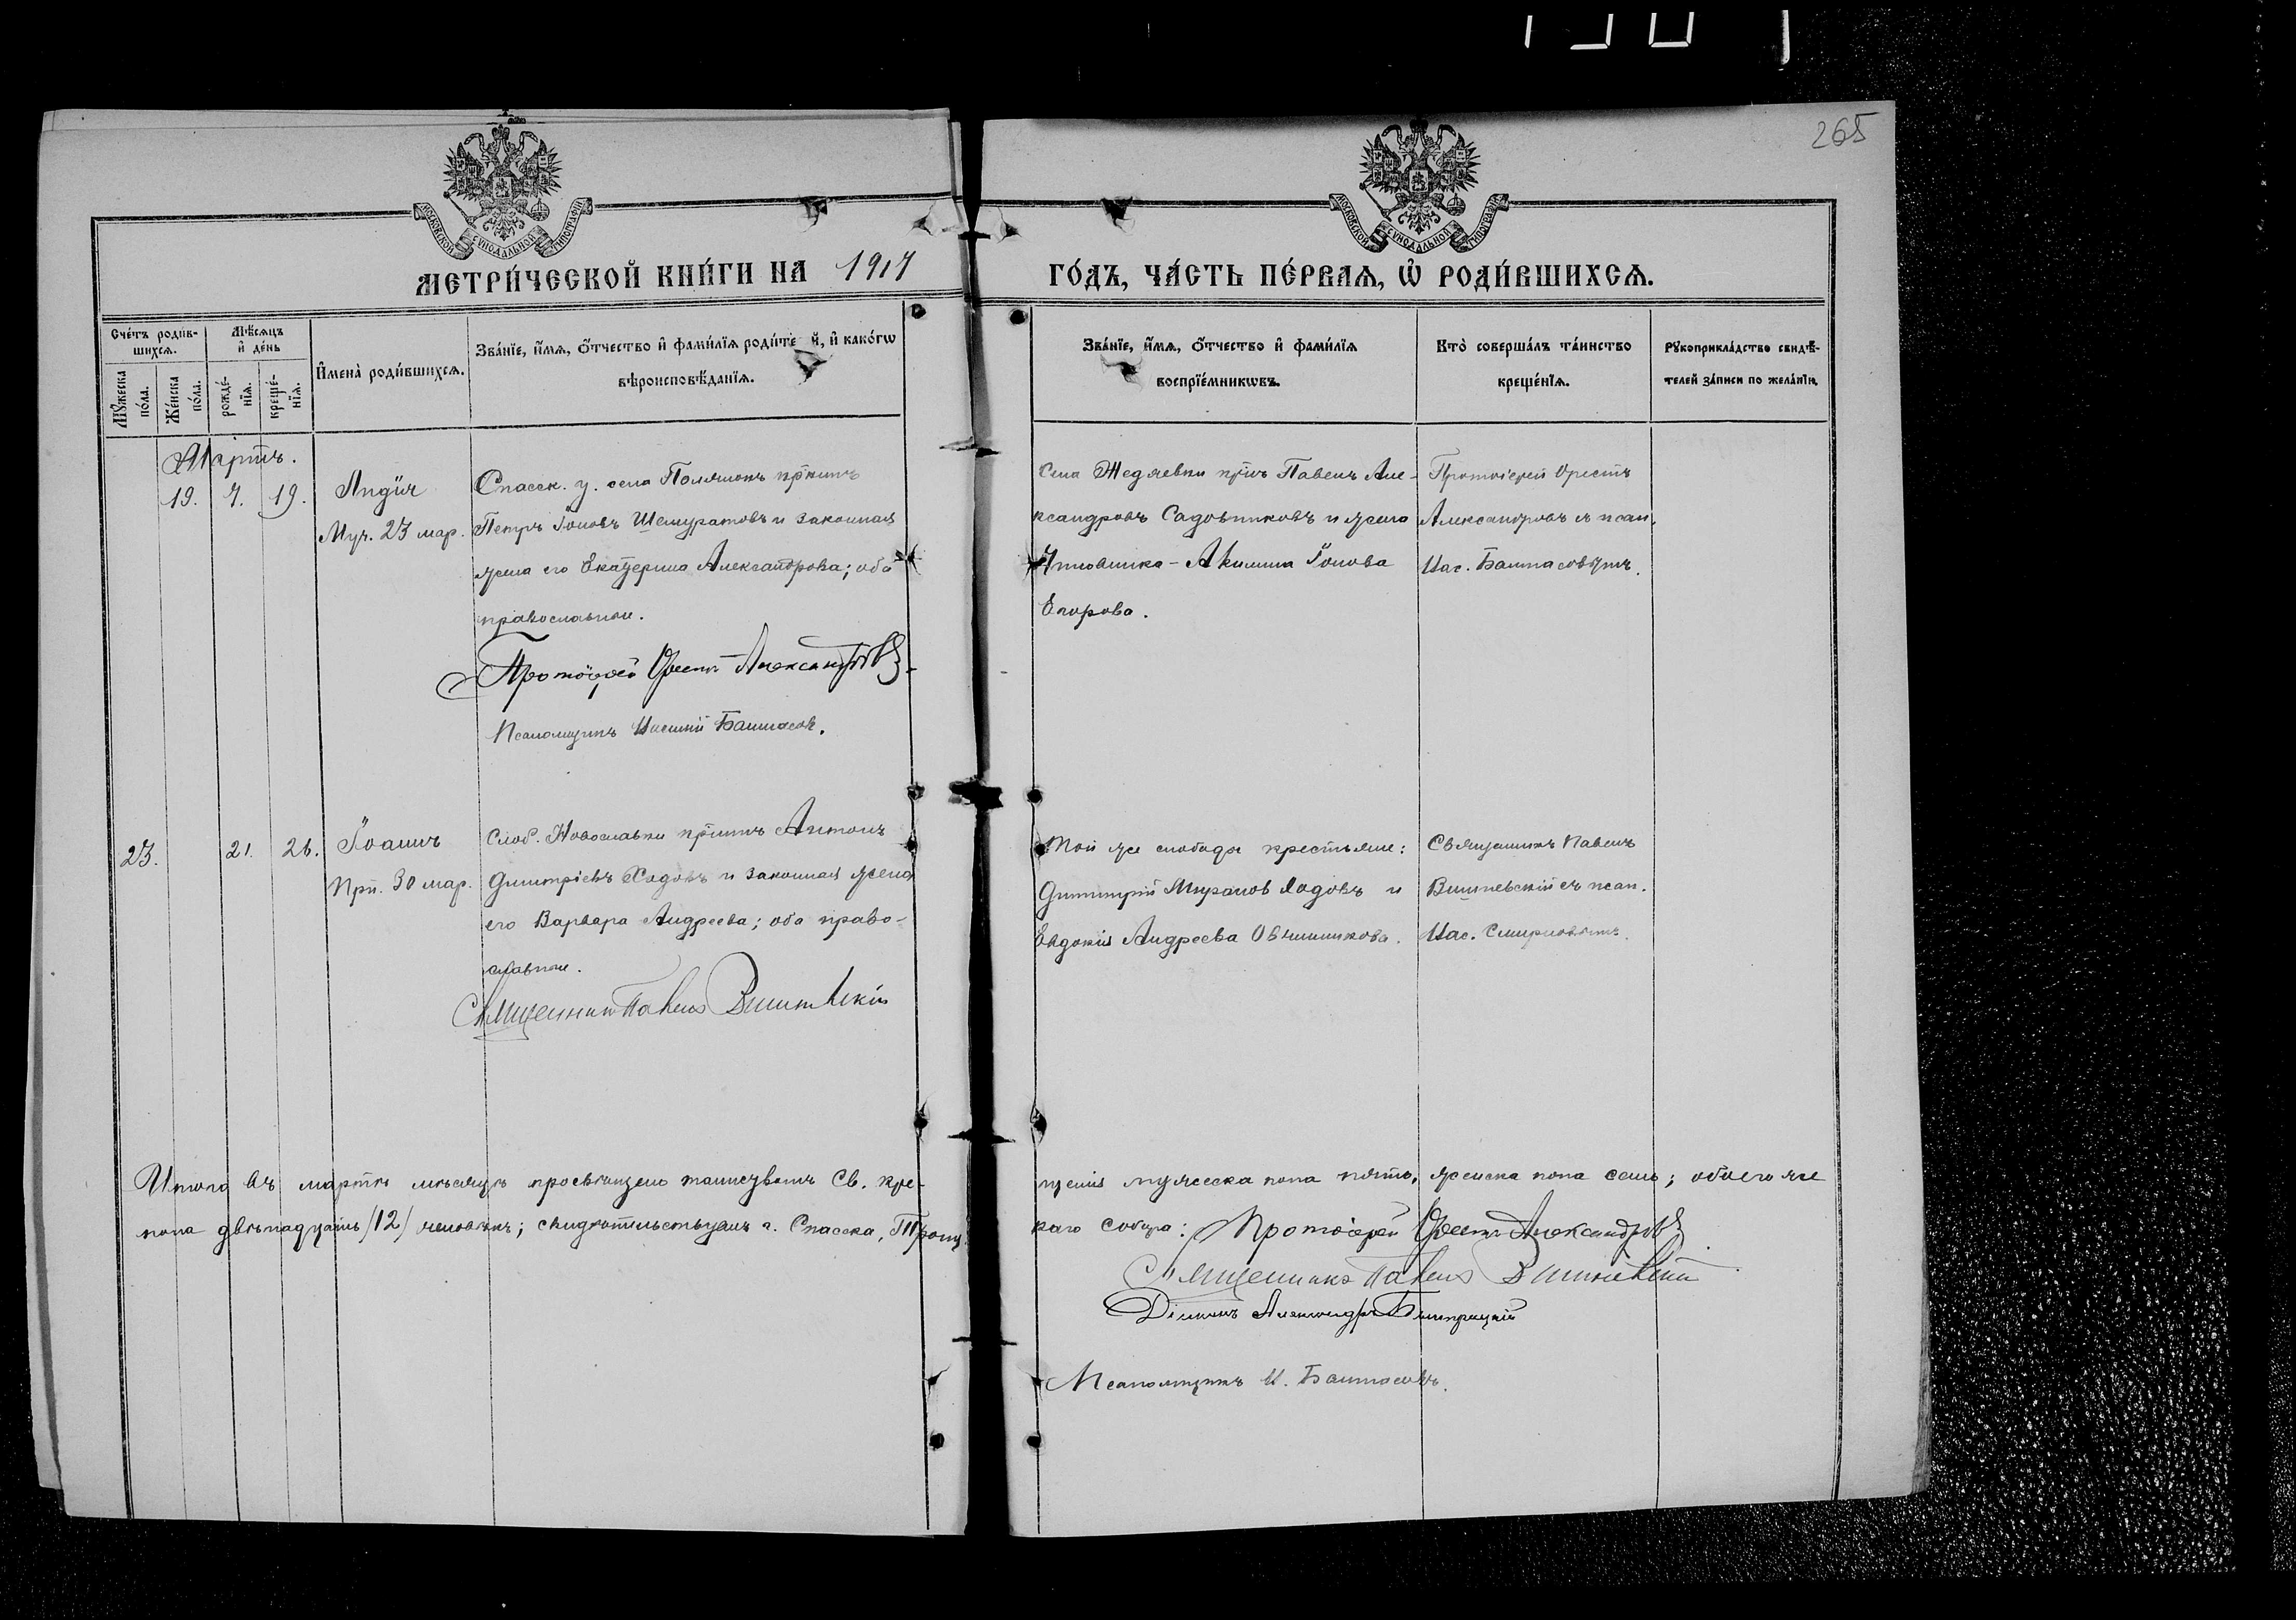 265
МОСКОВСКОЙ СѴНОДАЛЬНОЙ ТИПОГРАФІИ
МОСКОВСКОЙ СѴНОДАЛЬНОЙ ТИПОГРАФІИ
МЕТРИ́ЧЕСКОЙ КНИ́ГИ НА 1917 ГО́ДЪ, ЧА́СТЬ ПЕ́РВАѦ, Ѽ РОДИ́ВШИХСѦ.
Сче́тъ роди́в-
шихсѧ.
Мꙋ́жеска по́ла.
Же́нска по́ла.
Мѣ́сѧцъ
и҆ де́нь
рожде́-
нїѧ.
креще́-
нїѧ.
И҆мена̀ роди́вшихсѧ.
Зва́нїе, и҆́мѧ, ѻ҆́тчество и҆ фами́лїѧ роди́те й, и҆ како́гѡ
вѣроисповѣ́данїѧ.
Зва́нїе, и҆́мѧ, ѻ҆́тчество и҆ фами́лїѧ
воспрїе́мникѡвъ.
Кто̀ соверша́лъ та́инство
креще́нїѧ.
Рꙋкоприкла́дство свидѣ́-
телей за́писи по жела́нїю.
Мартъ.
19. 7. 19.
Лидія
Муч. 23 мар.
Спасск. у. села Полянокъ кр-нинъ
Петръ Іоновъ Шемуратовъ и законная
жена его Екатерина Александрова; оба
православные.
Протоіерей Орестъ Александровъ.
Псаломщикъ Башмасовъ.
Села Жедяевки кр-нъ Павелъ Але-
ксандровъ Садовниковъ и жена
Акилина Іонова
Егорова.
Протоіерей Орестъ
Александровъ съ псал.
Башмасовымъ.
23. 21. 26.
Іоаннъ
Прп. 30 мар.
Слоб. Новославки кр-нинъ Антонъ
Димитріевъ Ходовъ и законная жена
его Варвара Андреева; оба право-
славные.
Священникъ Павелъ Вишневскій
Той же слободы крестьяне:
Димитрій Ходовъ и
Евдокія Андреева Овчинникова.
Священникъ Павелъ
Вишневскій съ псал.
Смирновымъ.
Итого въ мартѣ мѣсяцѣ просвѣщено таинствомъ Св. кре-
щенія мужеска пола пять, женска пола семь; обоего же
пола двѣнадцать /12/ человѣкъ; свидѣтельствуемъ г. Спасска, Троиц-
каго собора: Протоіерей Орестъ Александровъ.
Священникъ Павелъ Вишневскій
Діаконъ Александръ
Псаломщикъ И. Башмасовъ.